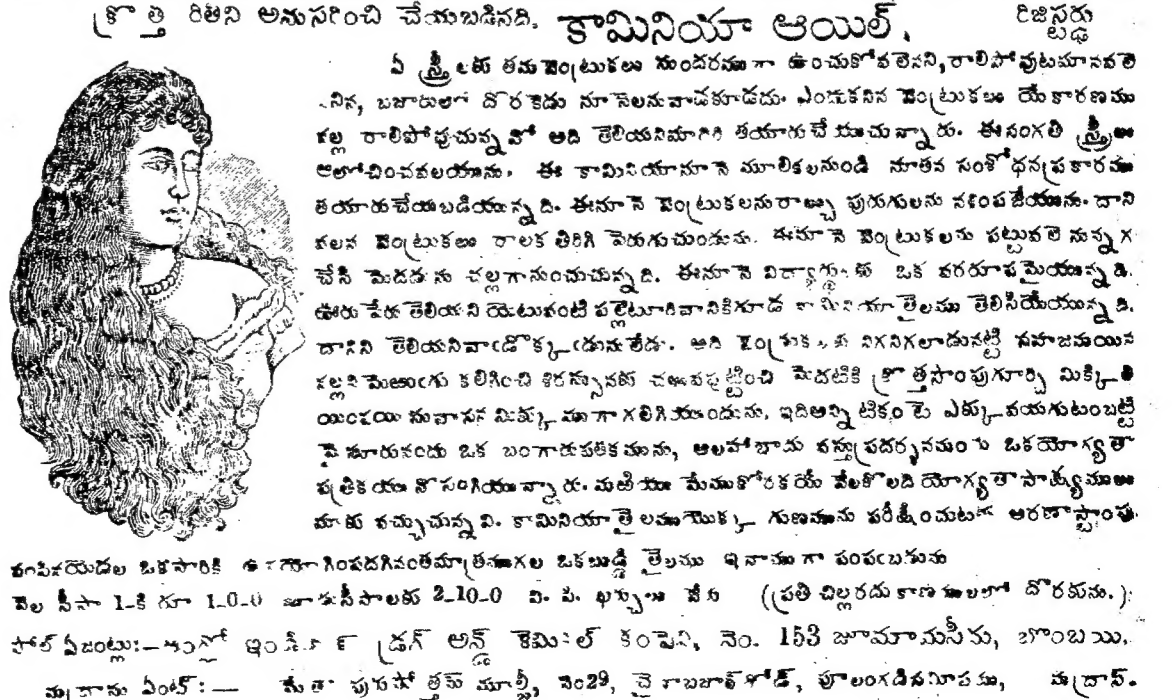 క్రొత్త రీతిని అనుసరించి చేయబడినది. కామినియా ఆయిల్. రిజిస్టర్డు
ఏ స్త్రీలకు తమ వెంట్రుకలు సుందరముగా ఉంచుకోవలెనని, రాలిపోవుటమానవలె
నిన, బజారులో దొరకెడు నూనెలనువాడకూడదు. ఎందుకనిన వెంట్రుకలు యేకారణము
వల్ల రాలిపోవుచున్నవో అది తెలియనిమాదిరి తయారుచేయుచున్నారు. ఈసంగతి స్త్రీలు
ఆలోచించవలయును. ఈ కామినియానూనె మూలికలనుండి నూతన సంశోధనప్రకారము
తయారుచేయబడియున్నది. ఈనూనె వెంట్రుకలనురాల్చు పురుగులను నశింపజేయును. దాని
వలన వెంట్రుకలు రాలక తిరిగి పెరుగుచుండును. ఈనూనె వెంట్రుకలను పట్టువలెనున్నగ
చేసి మెదడును చల్లగానుంచుచున్నది. ఈనూనె విద్యార్థులకు ఒక వరరూపమైయున్నది.
ఊరు పేరు తెలియని యెటువంటి పల్లెటూరివానికిగూడ కామినియా తైలము తెలిసియేయున్నది.
దానిని తెలియనివాఁడొక్కఁడునులేడు. అది వెంట్రుకలకు నిగనిగలాడునట్టి సహజమయిన
నల్లనిమెఱుఁగు కలిగించి శిరస్సునకు చలువపట్టించి మెదటికి క్రొత్తసొంపుగూర్చి మిక్కిలి
యింపయి సువాసన మిక్కుముగా గలిగియుండును. ఇదిఅన్నిటికంటె ఎక్కువయగుటంబట్టి
మైసూరునందు ఒక బంగారుపతకమును, అలహాబాదు వస్తుప్రదర్శనమందు ఒకయోగ్యతా
పత్రికయు నొసంగియున్నారు. మఱియు మేముకోరకయే వేలకొలది యోగ్యతాసాక్ష్యములు
మాకు వచ్చుచున్నవి. కామినియా తైలముయొక్క గుణమును పరీక్షించుటకు అరణాస్టాంపు
పంపినయెడల ఒకసారికి ఉపయోగింపదగినంతమాత్రముగల ఒకబుడ్డి తైలము ఇనాముగా పంపఁబడును
వెల సీసా 1-కి రూ 1-0-0 మూడుసీసాలకు 2-10-0 వి. పి. ఖర్చులు వేరు ((ప్రతి చిల్లరదుకాణములలో దొరకును.)
సోల్ ఏజంట్లు:— ఆంగ్లో ఇండియన్ డ్రగ్ అన్డ్ కెమికల్ కంపెని, నెం. 153 జూమామసీదు, బొంబయి.
మద్రాసు ఏంట్:— మేతా పురుషోత్తమ్ మూల్జీ, నెం29, చైనాబజార్‌రోడ్, పూలంగడిసమీపము, మద్రాస్.